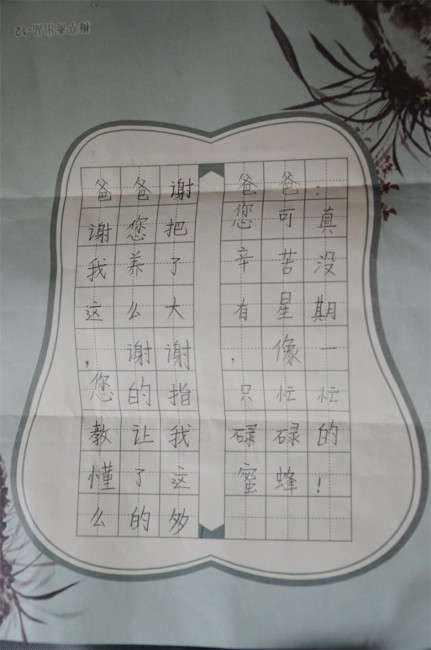 爸爸：
您可真
辛苦没
有星期
，像一
只忙忙
碌碌的
蜜蜂！
爸爸谢
谢您把
我养了
这么大
，谢谢
您的指
教让我
懂了这
么的多